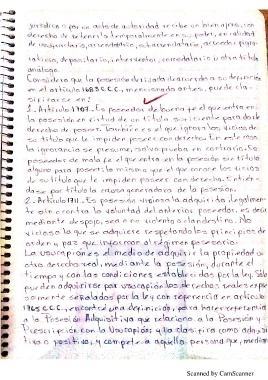 jurídico o por un acto de autoridad recibe un bien ajeno, con
derecho de retenerlo temporalmente en su poder, en calidad
de usufructuario, arrendatario, subarrendatario, acreedor pigno-
raticio, depositario, interventor, comodatario u otro título
análogo.
Considero que la posesión derivada de acuerdo a su
en el artículo mencionado antes, puede cla-
sificarse en:
1. Artículo Es poseedor de buena fe el que entra en
la posesión en virtud de un título suficiente para darle
derecho de poseer. También es el que ignora los vicios de
su título que le impiden poseer con derecho. En este caso
la ignorancia se presume, salvo prueba en contrario. Es
poseedor de mala fe el que entra en la posesión sin título
alguno para poseer: lo mismo que el que conoce los vicios
de su título que le impiden poseer con derecho. Entién-
dase por título la causa generadora de la posesión.
2. Artículo Es posesión viciosa la adquirida ilegalmen-
te o contra la voluntad del anterior poseedor, es decir
mediante despojo, sea o no violento o clandestino. No
viciosa la que se adquiere respetando los principios de
orden y paz que informan al régimen posesorio.
La usucapión es el medio de adquirir la propiedad u
otro derecho real, mediante la posesión, durante el
tiempo y con las condiciones establecidas por la ley. Sólo
pueden adquirirse por usucapión los derechos reales expre-
samente señalados por la ley con referencia en artículo
encontré una definición, para hacer referencia
a la Posesión Adquisitiva que relaciono a la Posesión y
Prescripción con la Usucapión; y la clasifica como adquisi-
tiva o positiva, y compete a aquella persona que, median
Scanned by CamScanner